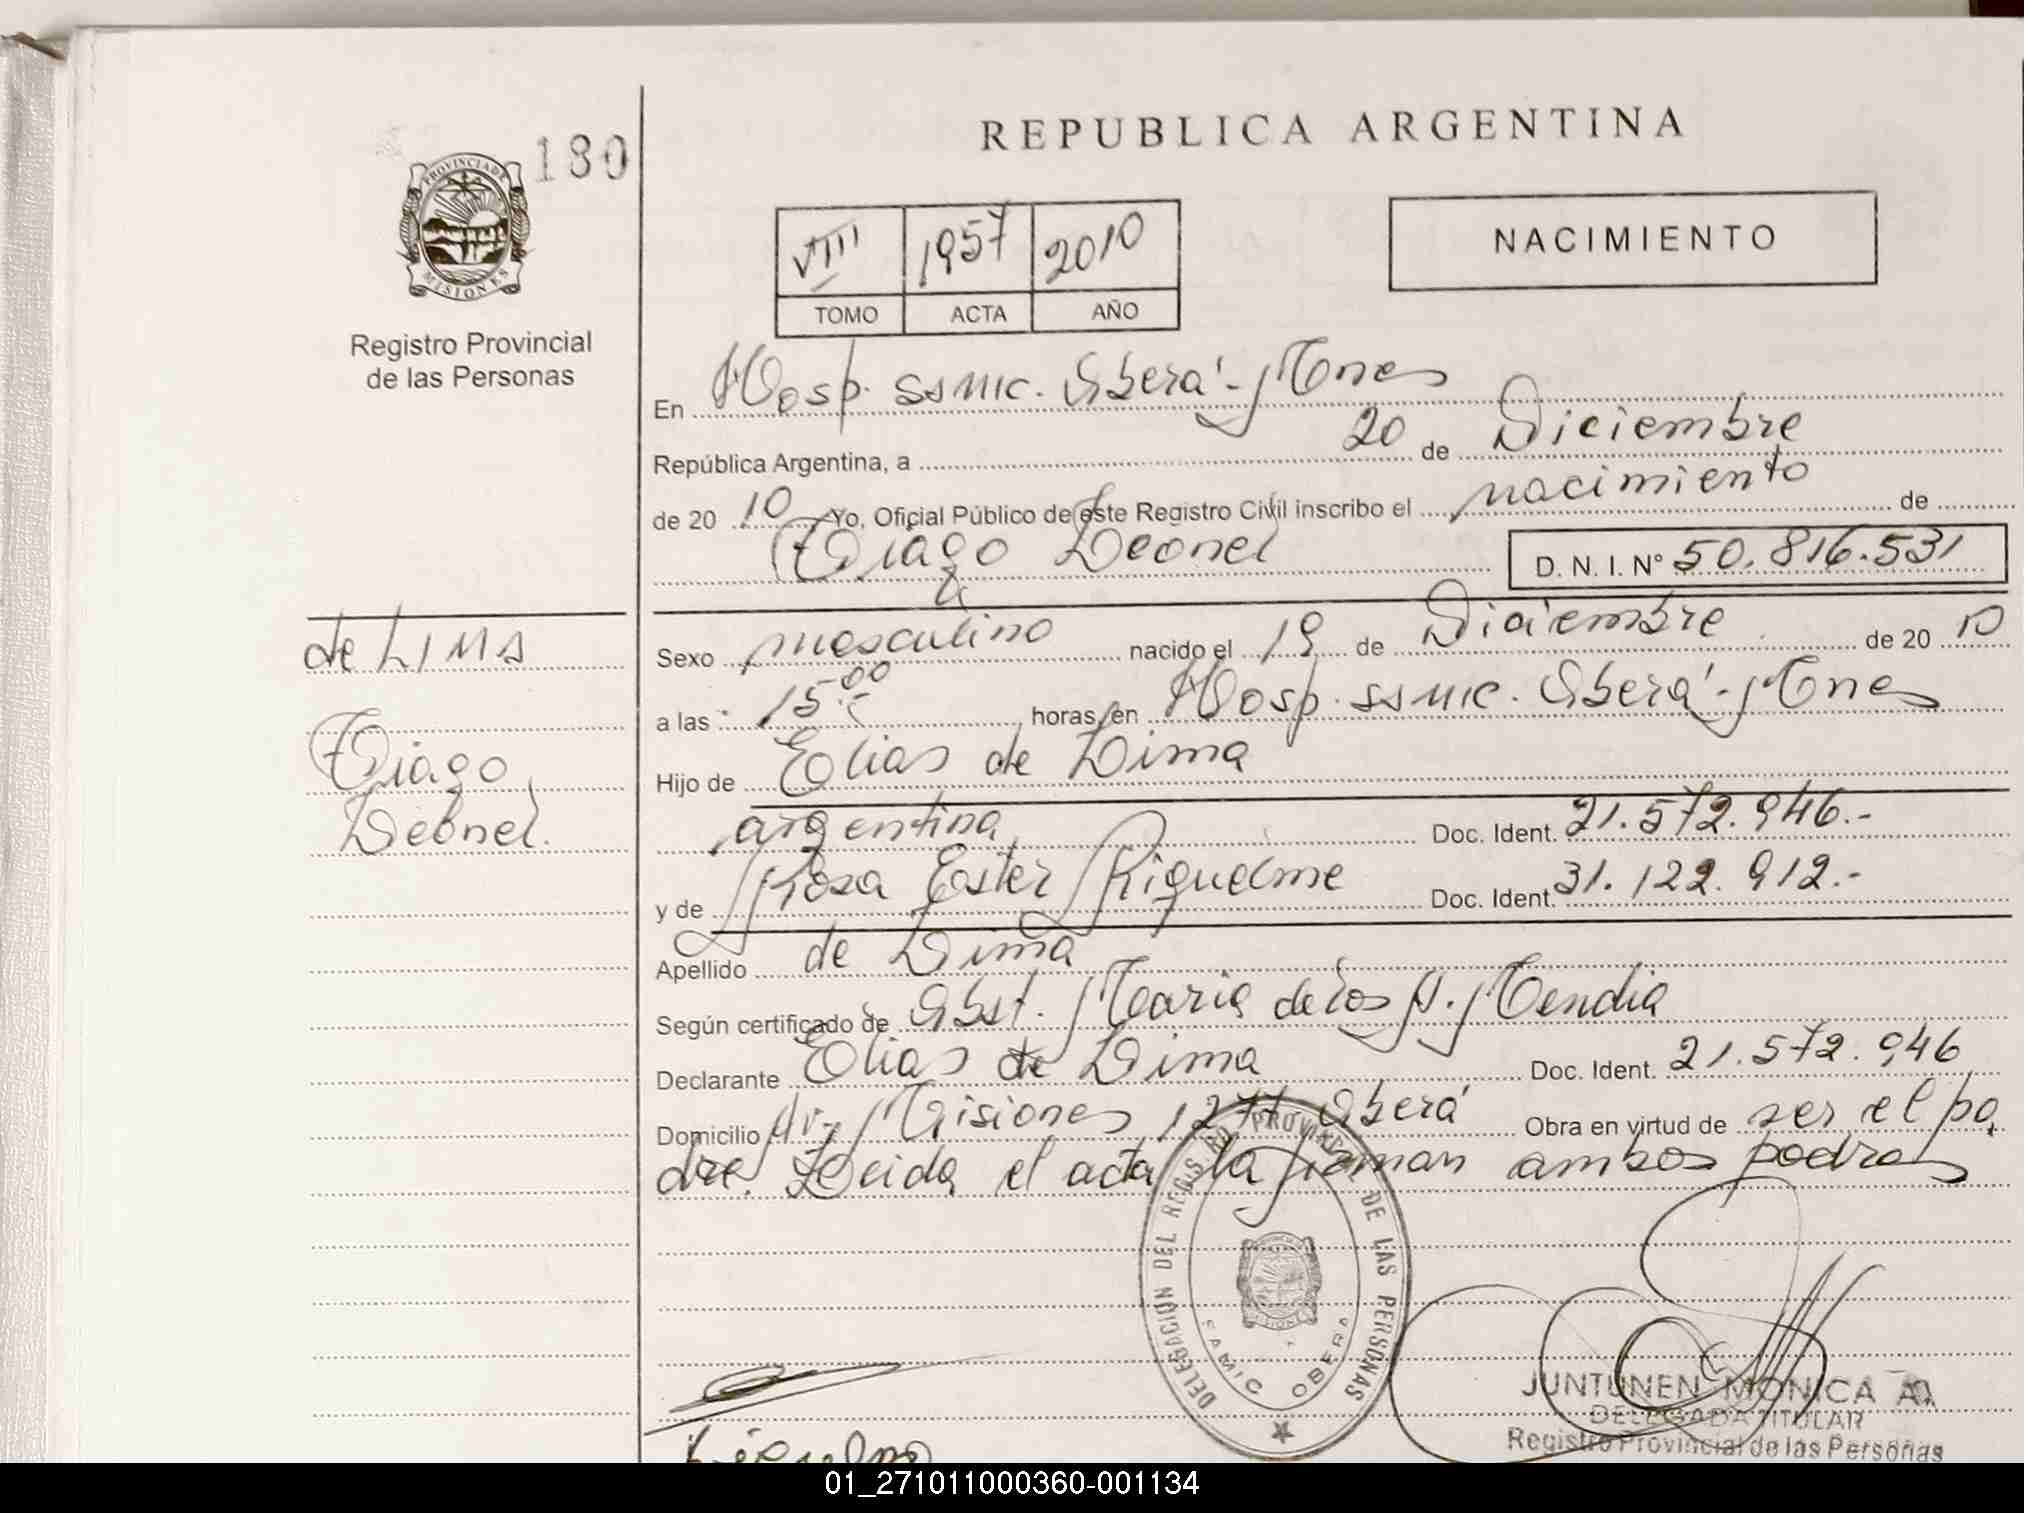 180
PROVINCIA DE
MISIONES
Registro Provincial
de las Personas
REPUBLICA ARGENTINA
VIII 1957 2010
TOMO ACTA AÑO
NACIMIENTO
En Hosp. SSMIC. Oberá - Mnes
República Argentina, a 20 de Diciembre
de 20 10 Yo, Oficial Público de este Registro Civil inscribo el nacimiento de
Thiago Leonel
D. N. I. Nº 50.816.531
de LIMA
Thiago
Leonel.
Sexo masculino nacido el 19 de Diciembre de 20 10
a las 15:00 horas, en Hosp. SSMIC. Oberá - Mnes
Hijo de Elias de Lima
argentina Doc. Ident. 21.572.946.-
y de Rosa Ester Riquelme Doc. Ident. 31.122.912.-
Apellido de Lima
Según certificado de Obst. Maria de los A. Mendia
Declarante Elias de Lima Doc. Ident. 21.572.946
Domicilio Av. Misiones 1277 Oberá Obra en virtud de ser el pa
dre. Leida el acta la firman ambos padres
DELEGACION DEL REGISTRO PROVINCIAL DE LAS PERSONAS
SAMIC OBERA
MISIONES
JUNTUNEN MONICA A.
DELEGADA TITULAR
Registro Provincial de las Personas
01_271011000360-001134